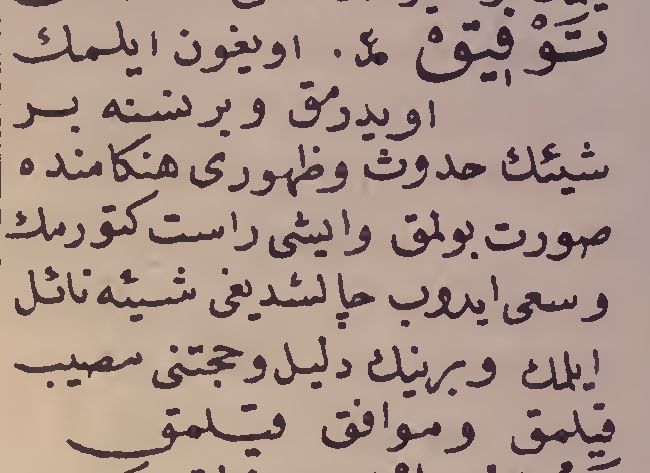 تَوْفِيقْ ع. اويغون ايلمك
اويدرمق و بر نسنه بر
شيئك حدوث وظهورى هنكامنده
صورت بولمق وايشى راست كتورمك
و سعى ايدوب چالشديغى شيئه نائل
ايلمك و برينك دليل وحجتنى مصيب
قيلمق و موافق قيلمق